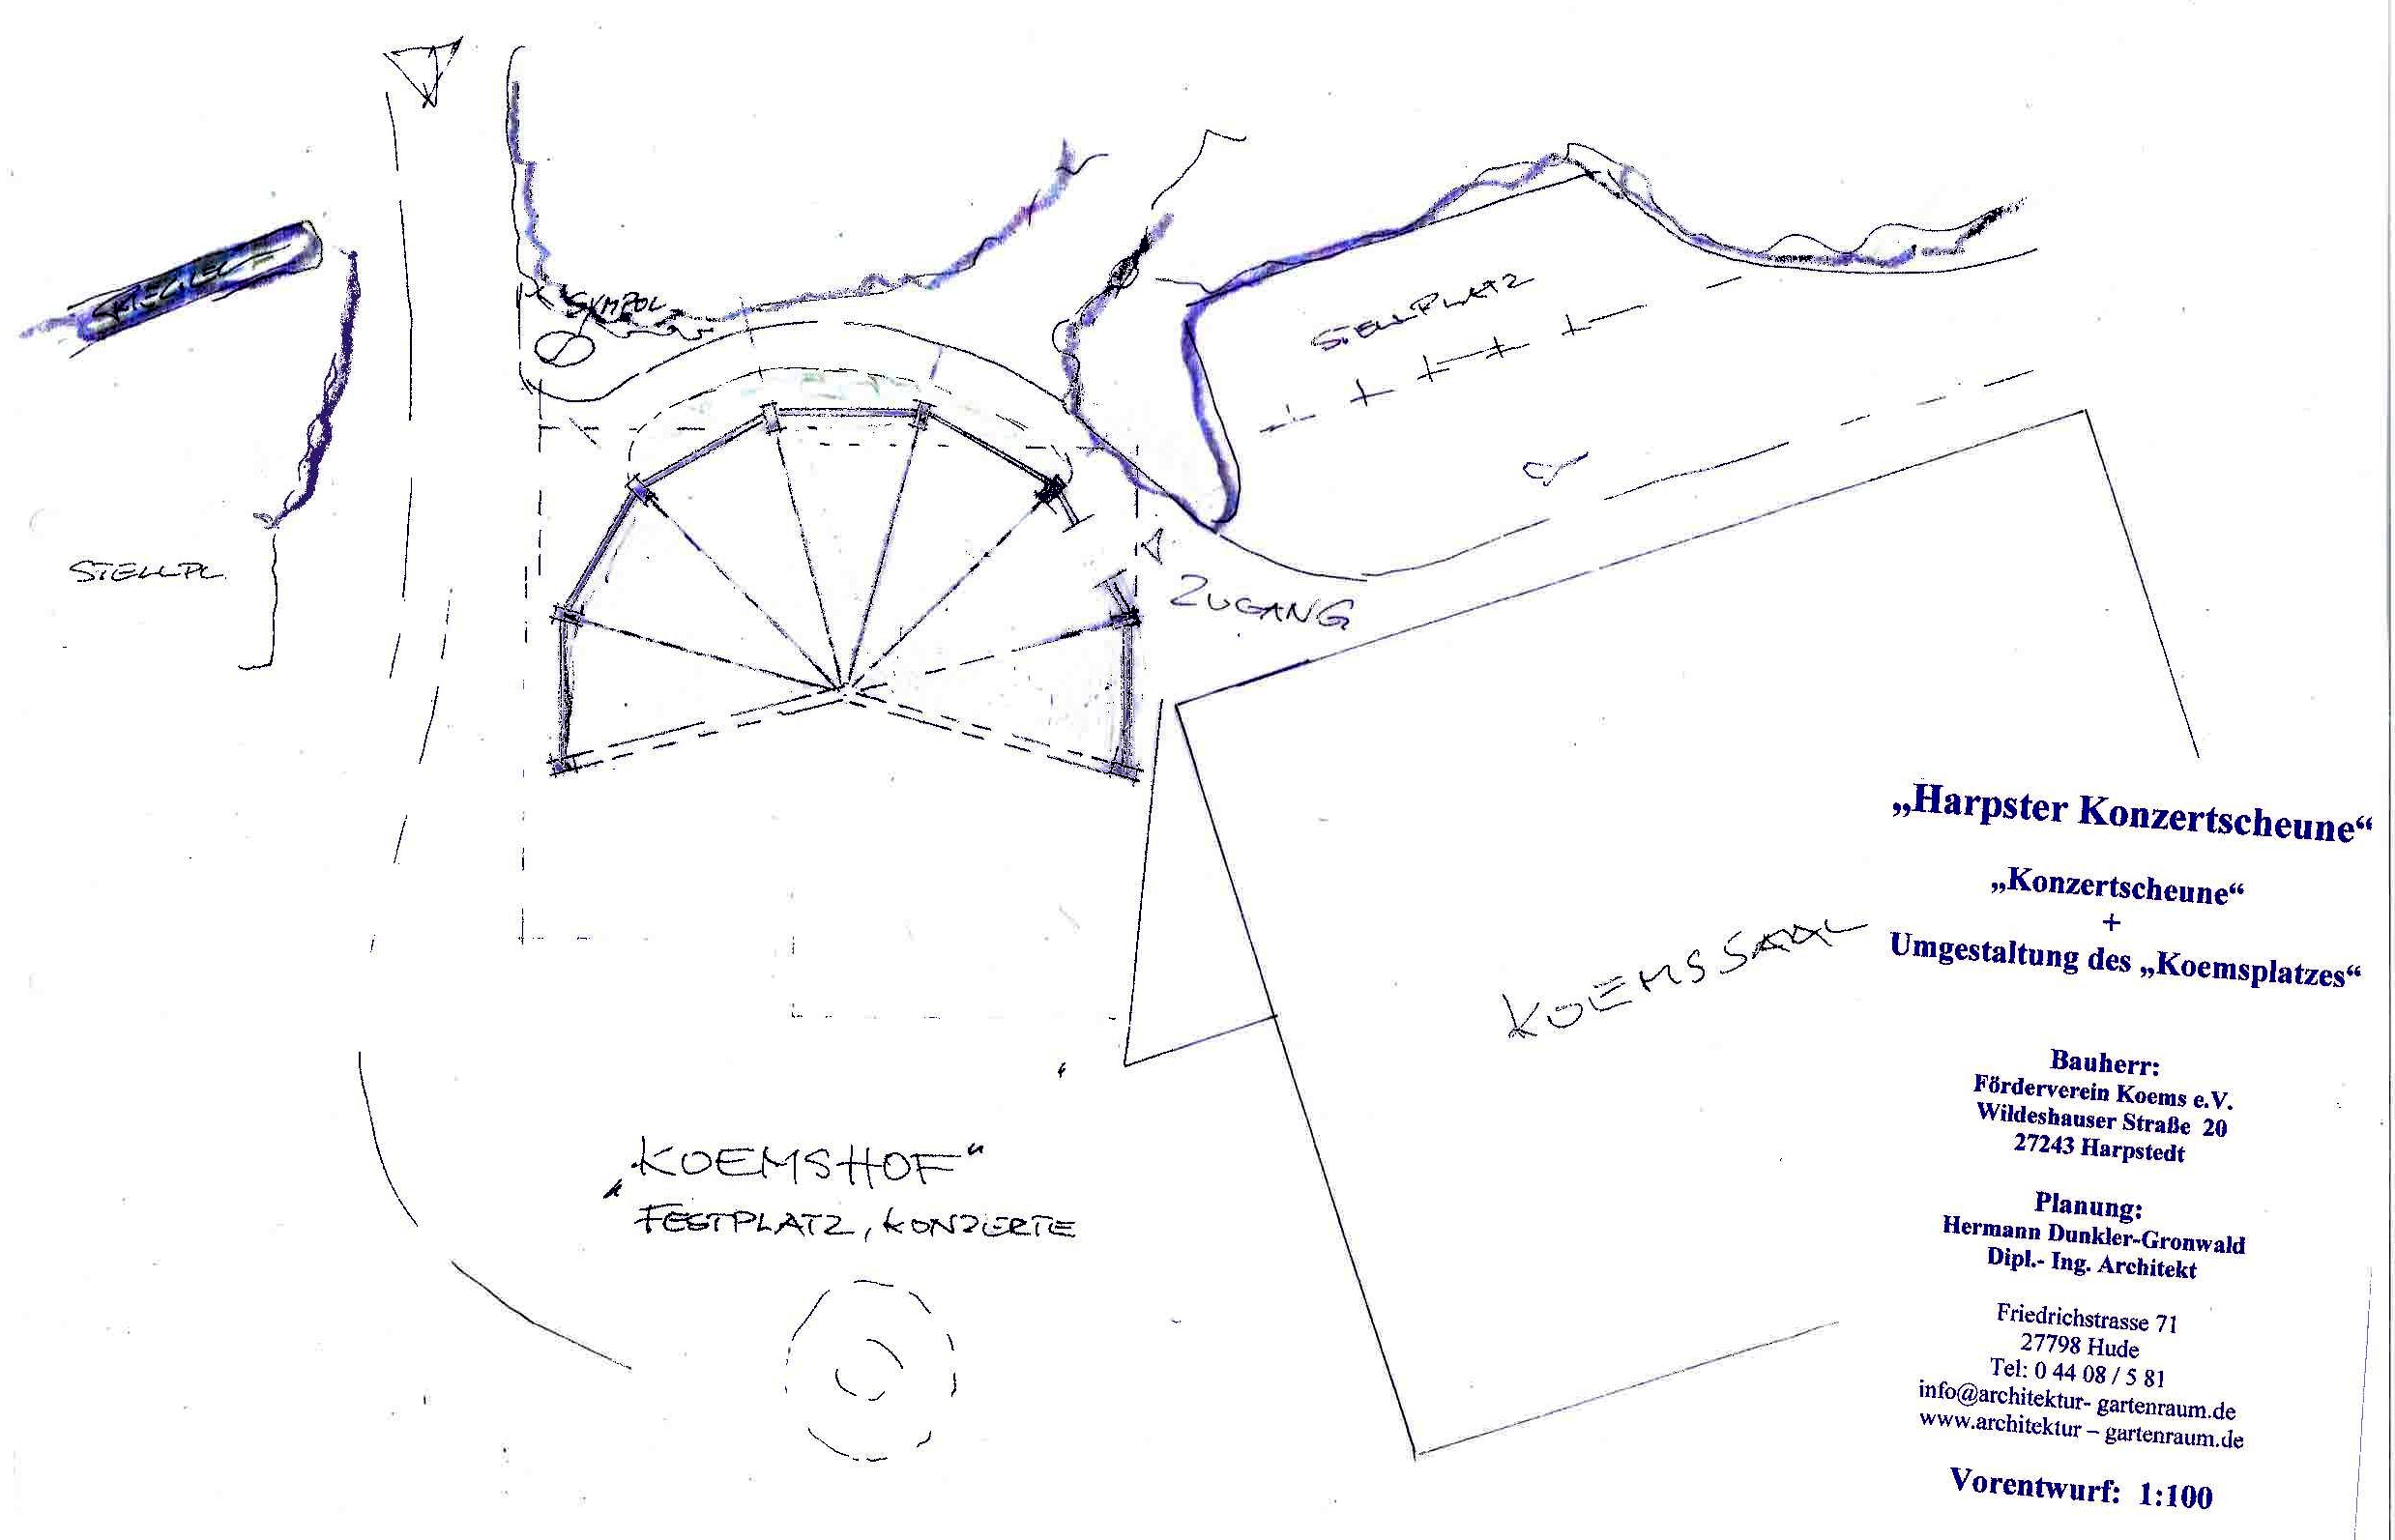 SYMBOL
STELLPLATZ
STELLPL.
ZUGANG
KOEMSSAAL
„KOEMSHOF“
FESTPLATZ, KONZERTE
„Harpster Konzertscheune“
„Konzertscheune“
+
Umgestaltung des „Koemsplatzes“
Bauherr:
Förderverein Koems e.V.
Wildeshauser Straße 20
27243 Harpstedt
Planung:
Hermann Dunkler-Gronwald
Dipl.- Ing. Architekt
Friedrichstrasse 71
27798 Hude
Tel: 0 44 08 / 5 81
info@architektur- gartenraum.de
www.architektur – gartenraum.de
Vorentwurf: 1:100